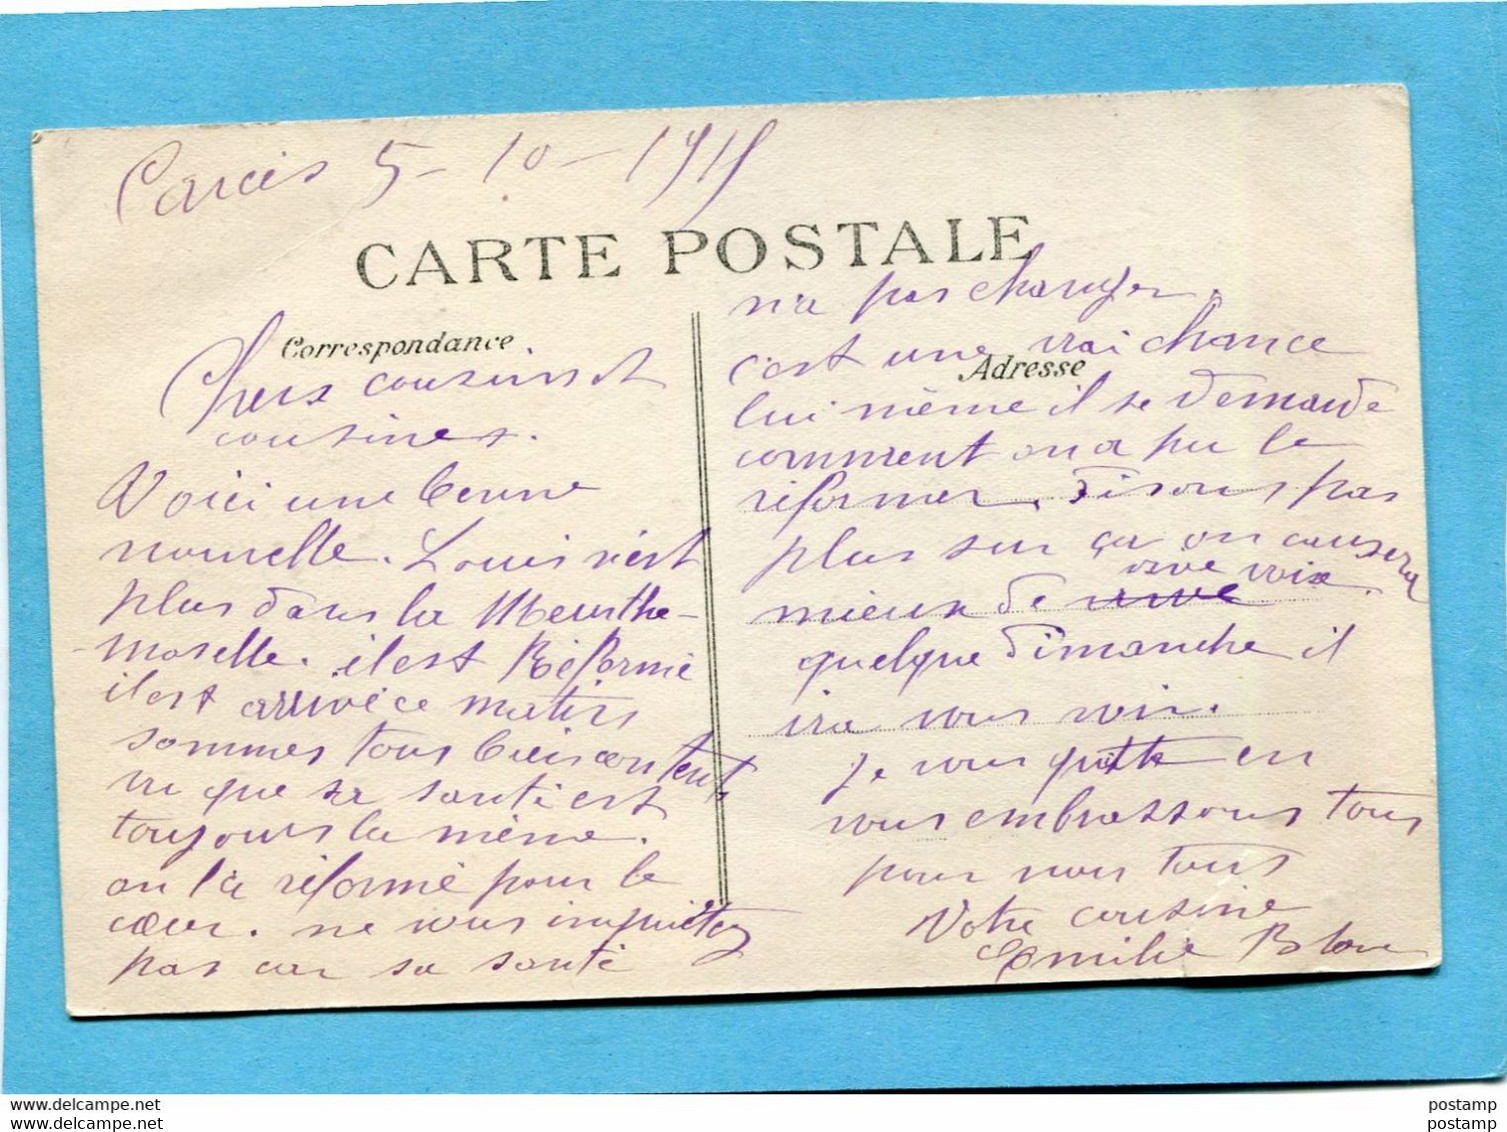 Carcès 5-10-1915
CARTE POSTALE
Correspondance
Chers cousins et
cousines.
Voici une bonne
nouvelle. Louis n'est
plus dans la Meurthe-
-moselle. il est Réformé
il est arrivé ce matin
sommes tous bien content
vu que sa santé est
toujours la même.
on l'a réformé pour le
cœur. ne vous inquiétez
pas car sa santé
n'a pas changer.
c'est une vrai chance
Adresse
lui même il se demande
comment on a pu le
réformer. disons pas
plus sur ça on causera
mieux de vive voix.
quelque dimanche il
ira vous voir.
je vous quitte en
vous embrassons tous
pour nous tous
Votre cousine
Emilie
www.delcampe.net
Uw website
postamp
postamp